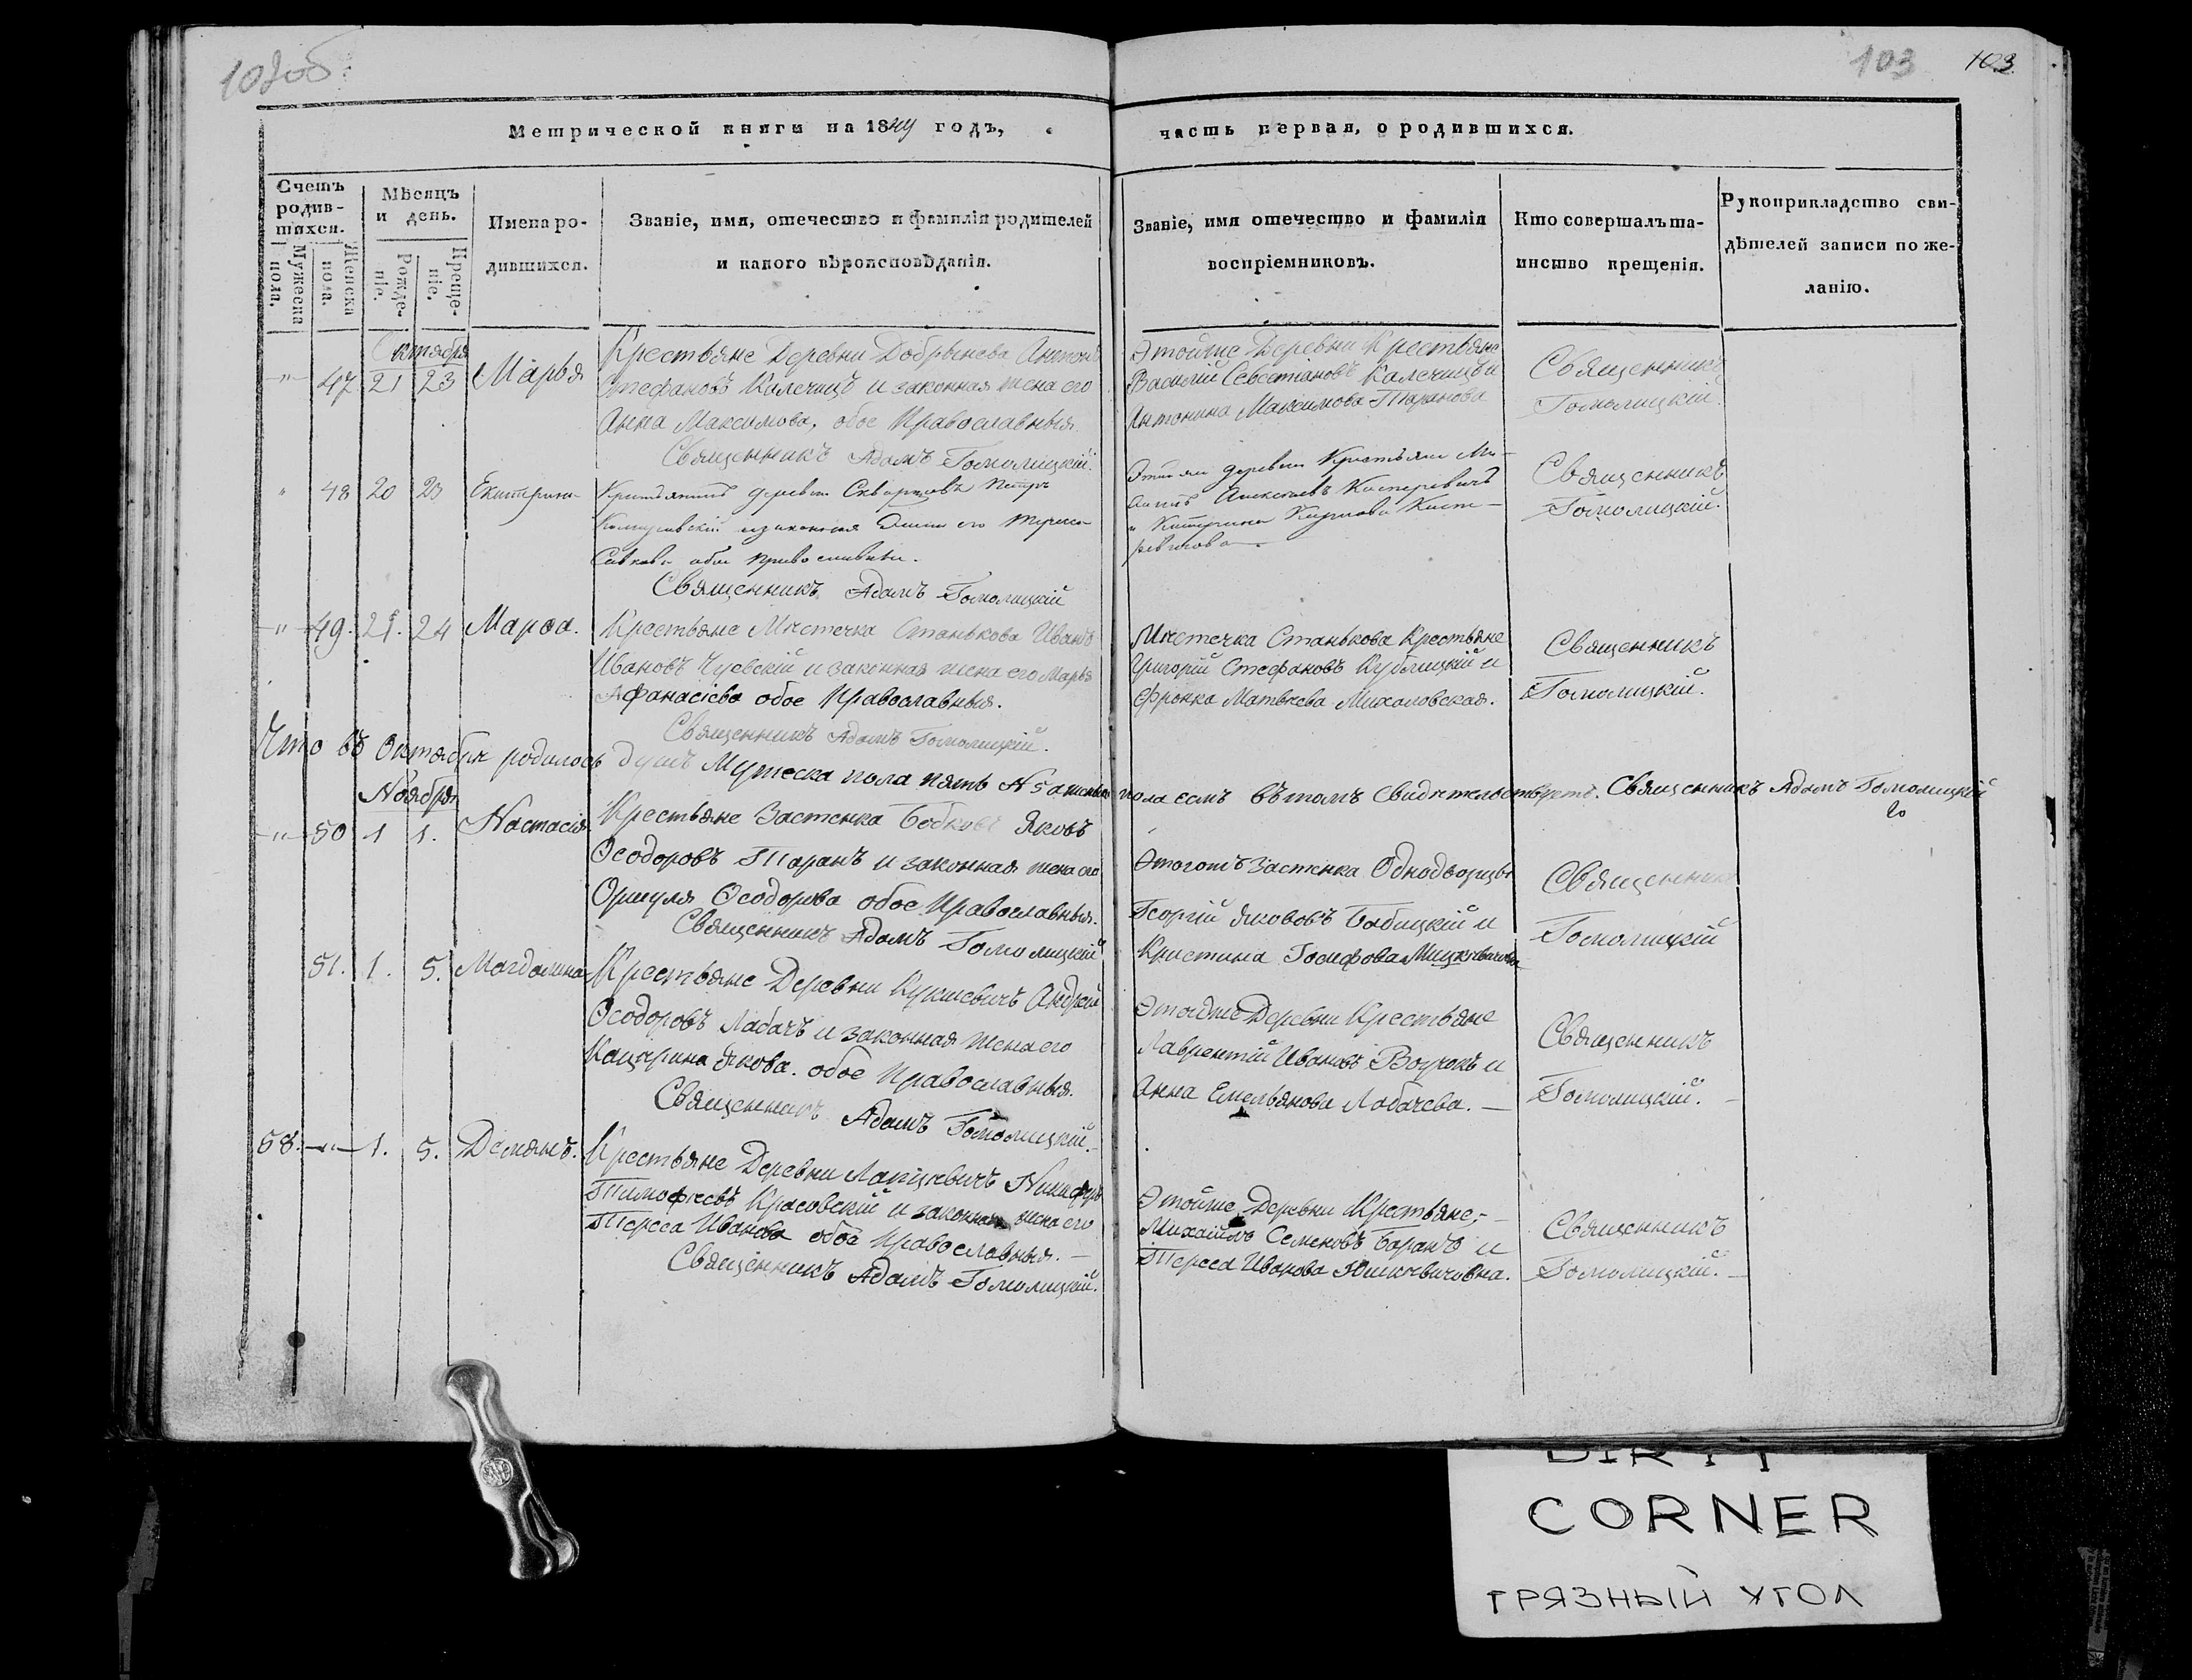 102об
103 103
Метрической книги на 1844 годъ, часть первая, о родившихся.
Счетъ родив-шихся.
Мужеска пола.
Женска пола.
Мѣсяцъ и день.
Рожде-ніе.
Креще-ніе.
Имена ро-
дившихся.
Званіе, имя, отечество и фамилія родителей
и какого вѣроисповѣданія.
Званіе, имя отечество и фамилія
воспріемниковъ.
Кто совершалъ та-
инство крещенія.
Рукоприкладство сви-
дѣтелей записи по же-
ланію.
Октября
" 47 21 23 Марья
Крестьяне Деревни Добрынева Антонъ
Стефановъ Калечицъ и законная жена его
Анна Максимова, обое Православныя.
Священникъ Адамъ Гомолицкій.
Этойже Деревни Крестьяне
Василій Севестіановъ Калечицъ и
Антонина Максимова Таранова
Священникъ
Гомолицкій.
" 48 20 23 Екатерина
Крестьянинъ деревни Скворцовъ Петръ
законная жена его
Савкова обои православные.
Священникъ Адамъ Гомолицкій
деревни Крестьяне
Алексѣевъ Касперовичъ
и Катерина
Священникъ
Гомолицкій.
" 49. 21. 24 Марѳа.
Крестьяне Мѣстечка Станькова Иванъ
Ивановъ Чуевскій и законная жена его Марья
Афанасіева обое Православныя.
Священникъ Адамъ Гомолицкій.
Мѣстечка Станькова Крестьяне
Григорій Стефановъ Кублицкій и
Фронка Матвѣева Михаловская.
Священникъ
Гомолицкій.
Что въ Октябрѣ родилось душъ Мужеска пола пять №5 а женска пола семь въ томъ Свидѣтельствуетъ. Священникъ Адамъ Гомолицкій
Ноября
" 50 1 1. Настасія
Крестьяне Застенка Бобковъ Яковъ
Ѳеодоровъ Таранъ и законная жена его
Ѳеодорова обое Православныя.
Священникъ Адамъ Гомолицкій
Этогожъ Застенка Однодворцы
Георгій Якововъ Бабицкій и
Кристина Іосифова Мицкевичовна
Священникъ
Гомолицкій
51. 1. 5. Магдалина
Крестьяне Деревни Кукшевичъ Андрей
Ѳеодоровъ Лабачъ и законная жена его
Кацярина Якова. обое Православныя.
Священникъ Адамъ Гомолицкій.
Этойже Деревни Крестьяне
Лаврентій Ивановъ и
Анна Емельянова Лабачева.
Священникъ
Гомолицкій.
58. " 1. 5. Демянъ.
Крестьяне Деревни Лапцевичъ Никифоръ
Тимофѣевъ Красовскій и законная жена его
Тереса Иванова обое Православныя.
Священникъ Адамъ Гомолицкій.
Этойже Деревни Крестьяне,
Михаилъ Семеновъ Баранъ и
Тереса Иванова Юшкевичовна.
Священникъ
Гомолицкій.
DIRTY
CORNER
ГРЯЗНЫЙ УГОЛ